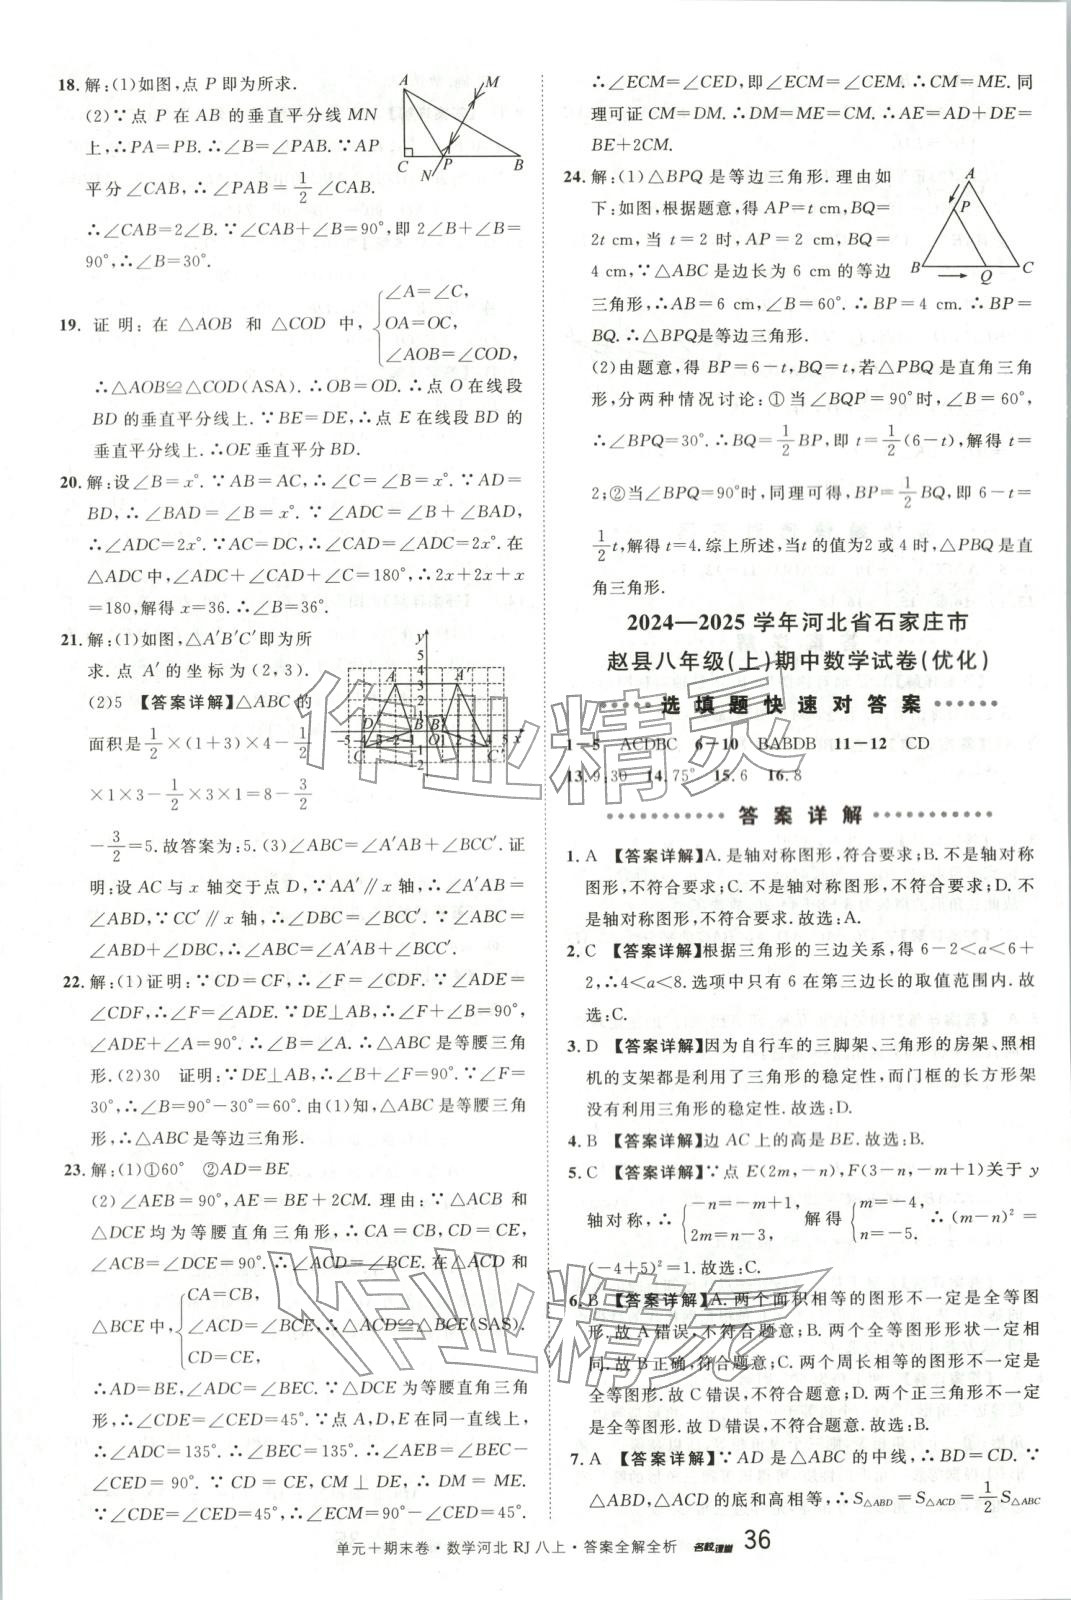 18. 解:(1)如图,点 P 即为所求.
(2)∵点 P 在 AB 的垂直平分线 MN
上,∴PA=PB. ∴∠B=∠PAB. ∵AP
平分∠CAB, ∴∠PAB=1/2∠CAB.
∴∠CAB=2∠B. ∵∠CAB+∠B=90°,即 2∠B+∠B=
90°,∴∠B=30°.
A
M
C
N
P
B
19. 证明: 在 △AOB 和 △COD 中, {∠A=∠C,
OA=OC,
∠AOB=∠COD,
∴△AOB≌△COD(ASA). ∴OB=OD. ∴点 O 在线段
BD 的垂直平分线上. ∵BE=DE,∴点 E 在线段 BD 的
垂直平分线上. ∴OE 垂直平分 BD.
20. 解:设∠B=x°. ∵AB=AC, ∴∠C=∠B=x°. ∵AD=
BD,∴∠BAD=∠B=x°. ∵∠ADC=∠B+∠BAD,
∴∠ADC=2x°. ∵AC=DC,∴∠CAD=∠ADC=2x°. 在
△ADC 中,∠ADC+∠CAD+∠C=180°,∴2x+2x+x
=180,解得 x=36. ∴∠B=36°.
21. 解:(1)如图,△A′B′C′即为所
求. 点 A′的坐标为(2,3).
(2)5 【答案详解】△ABC 的
面积是1/2×(1+3)×4-1/2
×1×3-1/2×3×1=8-3/2
-3/2=5.故答案为:5.(3)∠ABC=∠A′AB+∠BCC′. 证
明:设 AC 与 x 轴交于点 D,∵AA′∥x 轴,∴∠A′AB=
∠ABD,∵CC′∥x 轴,∴∠DBC=∠BCC′. ∵∠ABC=
∠ABD+∠DBC,∴∠ABC=∠A′AB+∠BCC′.
22. 解:(1)证明:∵CD=CF,∴∠F=∠CDF. ∵∠ADE=
∠CDF,∴∠F=∠ADE. ∵DE⊥AB,∴∠B+∠F=90°,
∠ADE+∠A=90°. ∴∠B=∠A. ∴△ABC 是等腰三角
形.(2)30 证明:∵DE⊥AB,∴∠B+∠F=90°. ∵∠F=
30°,∴∠B=90°-30°=60°. 由(1)知,△ABC 是等腰三角
形,∴△ABC 是等边三角形.
23. 解:(1)①60° ②AD=BE
(2)∠AEB=90°,AE=BE+2CM. 理由:∵△ACB 和
△DCE 均为等腰直角三角形,∴CA=CB,CD=CE,
∠ACB=∠DCE=90°. ∴∠ACD=∠BCE. 在△ACD 和
△BCE 中, {CA=CB,
∠ACD=∠BCE,
CD=CE,
∴△ACD≌△BCE(SAS).
∴AD=BE,∠ADC=∠BEC. ∵△DCE 为等腰直角三角
形,∴∠CDE=∠CED=45°. ∵点 A,D,E 在同一直线上,
∴∠ADC=135°. ∴∠BEC=135°. ∴∠AEB=∠BEC-
∠CED=90°. ∵CD=CE,CM⊥DE, ∴DM=ME.
∵∠CDE=∠CED=45°,∴∠ECM=90°-∠CED=45°,
∴∠ECM=∠CED,即∠ECM=∠CEM. ∴CM=ME. 同
理可证 CM=DM. ∴DM=ME=CM. ∴AE=AD+DE=
BE+2CM.
24. 解:(1)△BPQ 是等边三角形. 理由如
下:如图,根据题意,得 AP=t cm,BQ=
2t cm,当 t=2 时,AP=2 cm,BQ=
4 cm,∵△ABC 是边长为 6 cm 的等边
三角形,∴AB=6 cm,∠B=60°. ∴BP=4 cm. ∴BP=
BQ. ∴△BPQ是等边三角形.
A
P
B
Q
C
(2)由题意,得 BP=6-t,BQ=t,若△PBQ是直角三角
形,分两种情况讨论:①当∠BQP=90°时,∠B=60°,
∴∠BPQ=30°. ∴BQ=1/2BP,即 t=1/2(6-t),解得 t=
2;②当∠BPQ=90°时,同理可得,BP=1/2BQ,即 6-t=
1/2t,解得t=4.综上所述,当t的值为2或4时,△PBQ是直
角三角形.
2024—2025 学年河北省石家庄市
赵县八年级(上)期中数学试卷(优化)
选填题快速对答案
1-5 ACDBC 6-10 BABDB 11-12 CD
13.9:30 14.75° 15.6 16.8
答案详解
1. A 【答案详解】A. 是轴对称图形,符合要求;B. 不是轴对称
图形,不符合要求;C. 不是轴对称图形,不符合要求;D. 不
是轴对称图形,不符合要求. 故选:A.
2. C 【答案详解】根据三角形的三边关系,得 6-2<a<6+
2,∴4<a<8. 选项中只有 6 在第三边长的取值范围内. 故
选:C.
3. D 【答案详解】因为自行车的三脚架、三角形的房架、照相
机的支架都是利用了三角形的稳定性,而门框的长方形架
没有利用三角形的稳定性. 故选:D.
4. B 【答案详解】边 AC 上的高是 BE. 故选:B.
5. C 【答案详解】∵点 E(2m,-n),F(3-n,-m+1)关于 y
轴对称,∴{-n=-m+1,
2m=n-3,
解得{m=-4,
n=-5.
∴(m-n)²=
(-4+5)²=1. 故选:C.
6. B 【答案详解】A. 两个面积相等的图形不一定是全等图
形. 故 A 错误,不符合题意;B. 两个全等图形形状一定相
同. 故 B 正确,符合题意;C. 两个周长相等的图形不一定是
全等图形. 故 C 错误,不符合题意;D. 两个正三角形不一定
是全等图形. 故 D 错误,不符合题意. 故选:B.
7. A 【答案详解】∵AD 是△ABC 的中线,∴BD=CD. ∵
△ABD,△ACD 的底和高相等,∴S△ABD=S△ACD=1/2S△ABC
单元+期末卷·数学河北 RJ 八上·答案全解全析 名校课堂 36
作业精灵
作业精灵